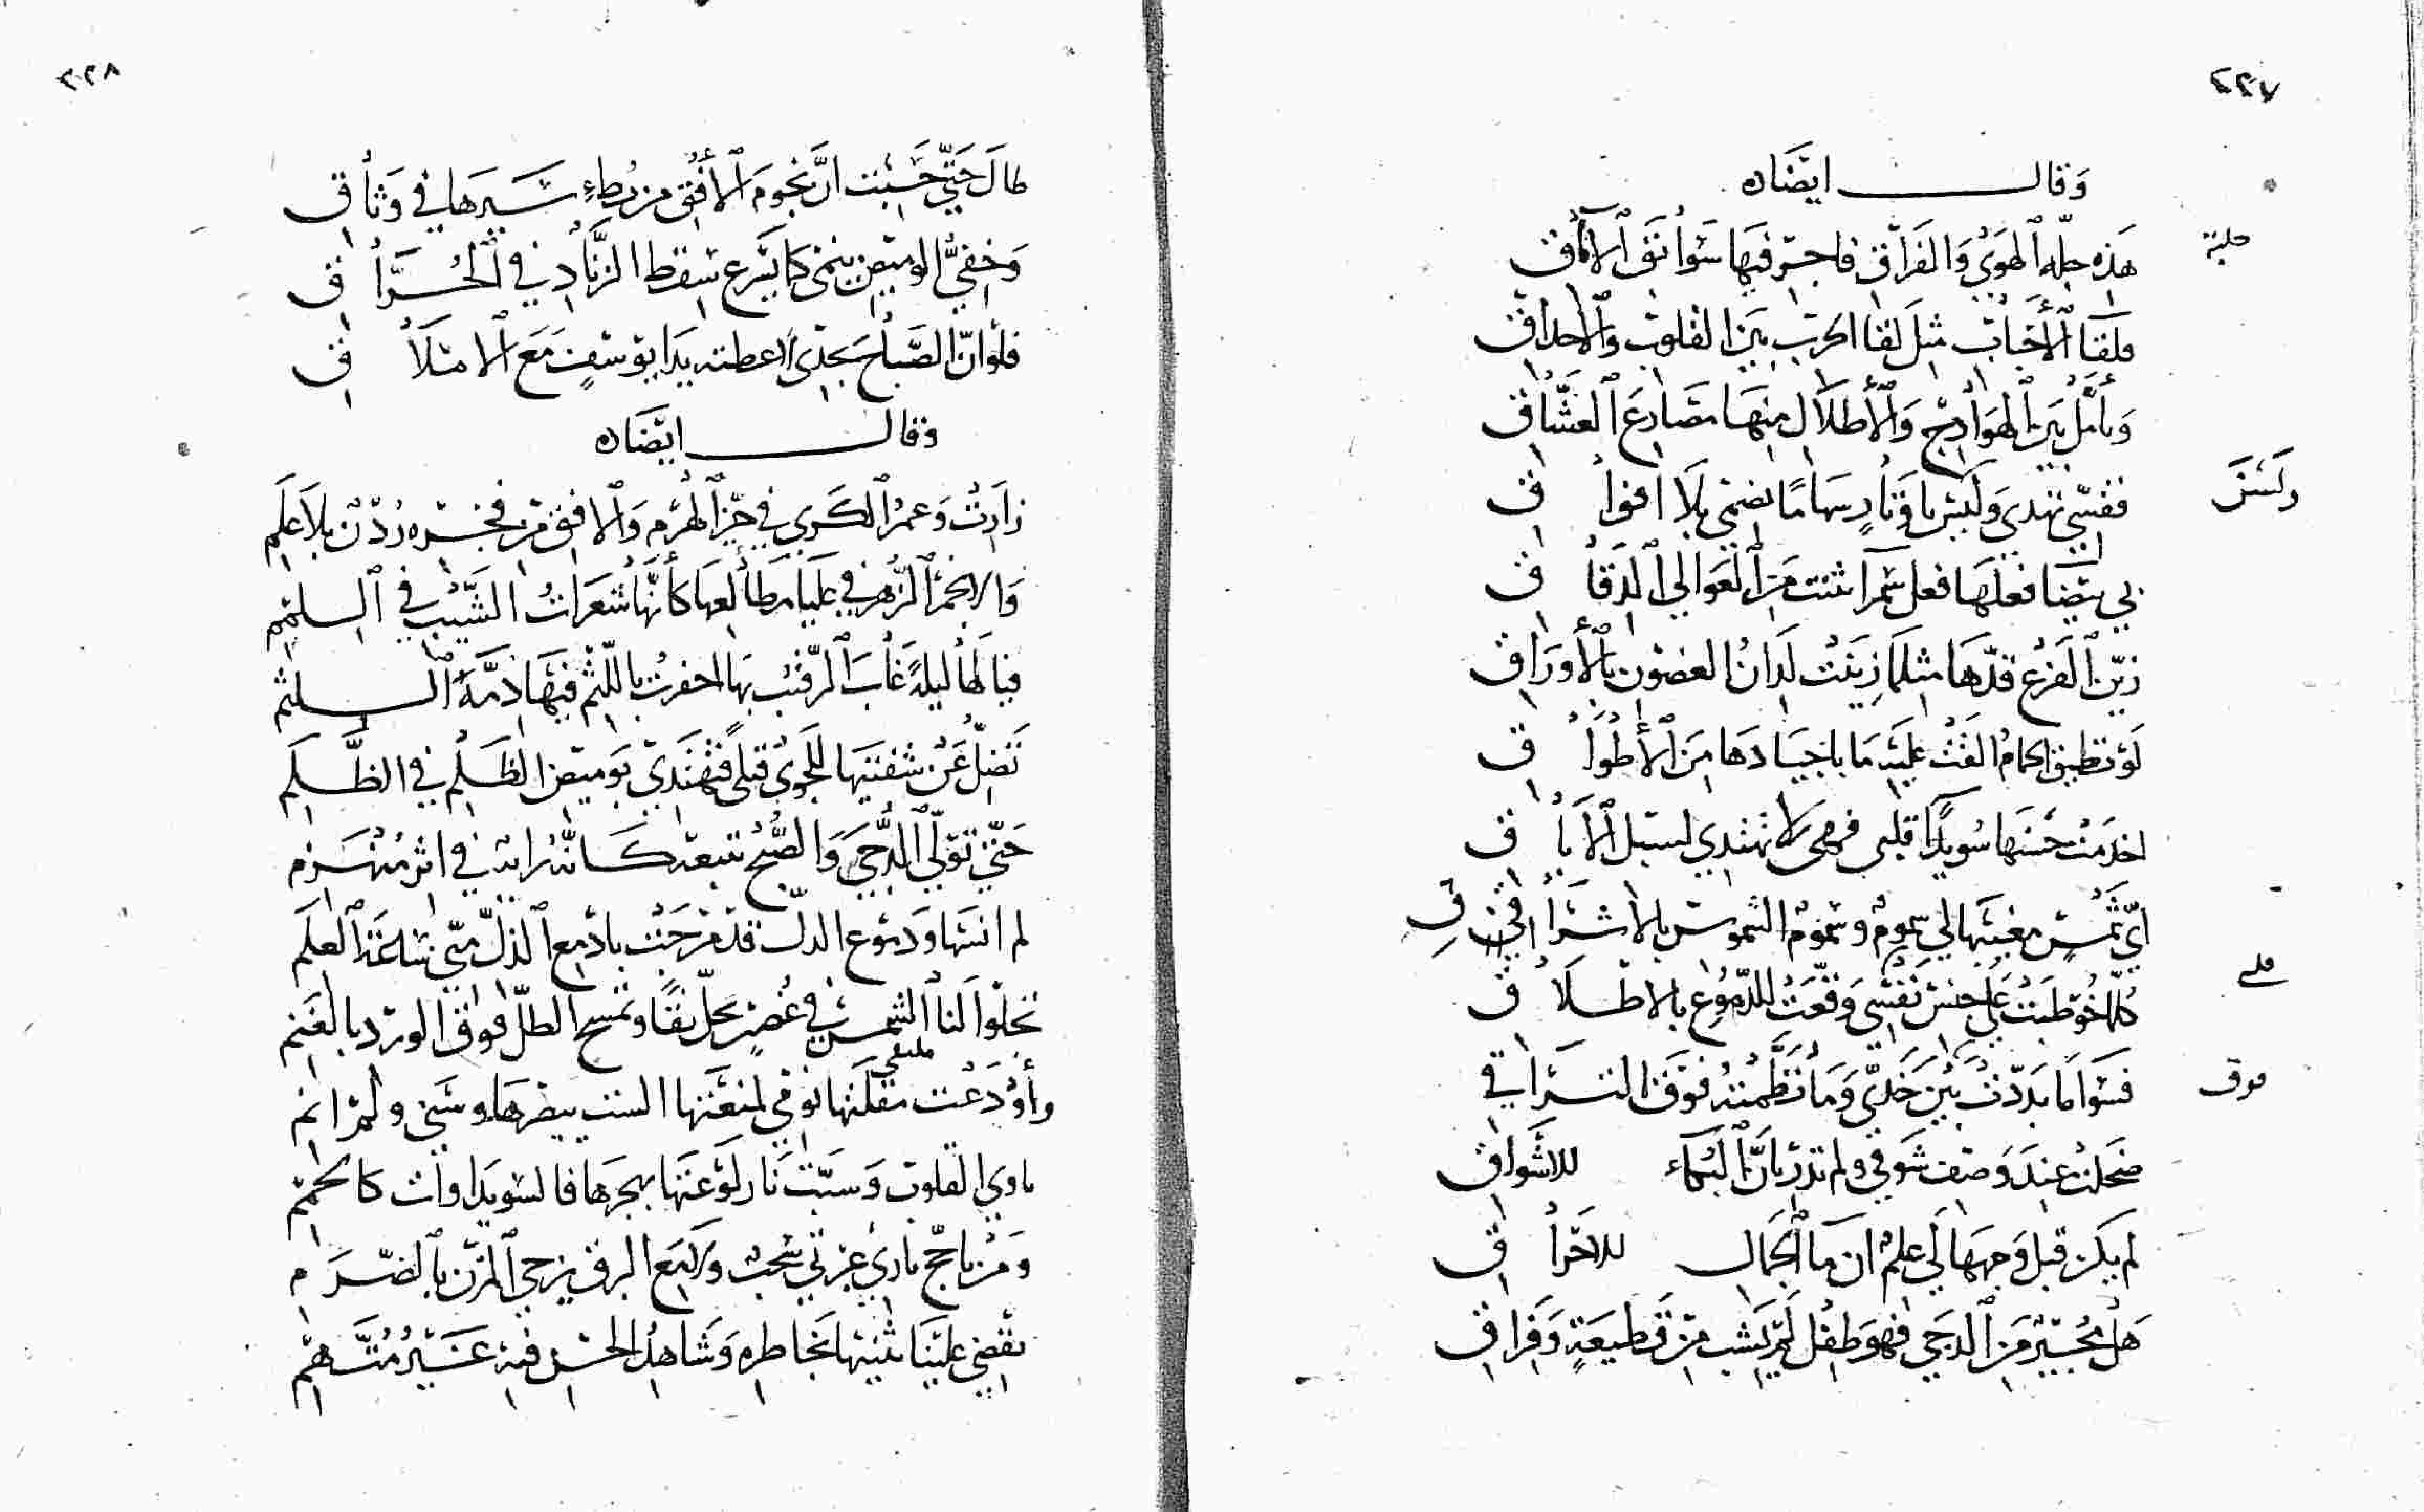 ٢٢٧
وَقال ايضًا ه
هَذه حلبة الهَوَى وَالفرَاق فاحبس فيهَا سَوابق الآماق
حلبة
فلقا الأحباب مثل لقا الحرب بين القلوب والأحداق
وَتأمّل بين الهَوادج وَالأطلال منهَا مصَارع العشّاق
فقسي تهدى وَليس باوتار سهَامًا تصمى بلا افواق
وَليسَ
بي بيضا فعلهَا فعل سمرا ثنت من العَوالي الدقاق
زين الفرع قدّهَا مثلما زينت لدان الغصون بالأورَاق
لَو تطيق الحمام القت عليه ما باجيادهَا من الأطواق
اخدمت حسنهَا سُويدَا قلبى فهى لا تهتدي لسبل الاباق
ايّ شمس مغيبهَا لي سموم وسموم الشموس بالاشراق
كلّما خُوطبت على حبس نفسي وقّعت للدّموع بالاطلاق
على
فسَوا ما بدّدت بين خدّي وَما نظّمته فوق التراقي
فوق
ضحكت عند وَصف شَوقي ولم تدر بانّ البكاء للاشواق
لم يكن قبل وَجههَا لي علم ان ما الجمال للاحراق
هَل مجير من الدجى فهو طفل لم يشب من قطيعَةٍ وَفراق
٢٢٨
طال حَتّى حَسبت انّ نجوم الأفق من بُطءِ سَيرهَا في وَثاق
وَخفيُّ الوميض ينمى كما يسرع سقط الزّناد في الحُرّاق
فلوْ انّ الصّباح يجدى لاعطته يدا يوسفٍ مَع الاملاق
وقال ايضًا ه
زارت وَعمر الكرى في حيّز الهرم وَالافق من فجره ردن بلا علم
وَالانجم الزّهر في عليا مطالعهَا كأنّها شعرات الشّيب في اللمم
فيا لهَا ليلة غاب الرّقيب بهَا اخفرت باللّثم فيهَا ذمّة اللثم
تضلّ عن شفتيهَا للجوى قبلى فتهتدي بوميض الظلم في الظّلم
حَتّى تولّى الدّجى وَالصّبح يتبعه كانّه رايَة في اثر مُنهزم
لم انسَهَا وَدموع الدلّ قد مزجت بادمع الذلّ منّى ساعة العلم
تجلوا لنا الشمس في غُصن بحلّ نقًا وتمسح الطلّ فوق الورد بالعنم
وأودَعت مقلتهَا
ملتقى
ماوى القلوب وَسبّت نَار لوعتهَا بهجرهَا فالسّويداوات كالحمم
البرق يزجي المزن بالضّرم
تقضي علينا بخاطره وَشاهد الحسن فيه غَير مُتّهم